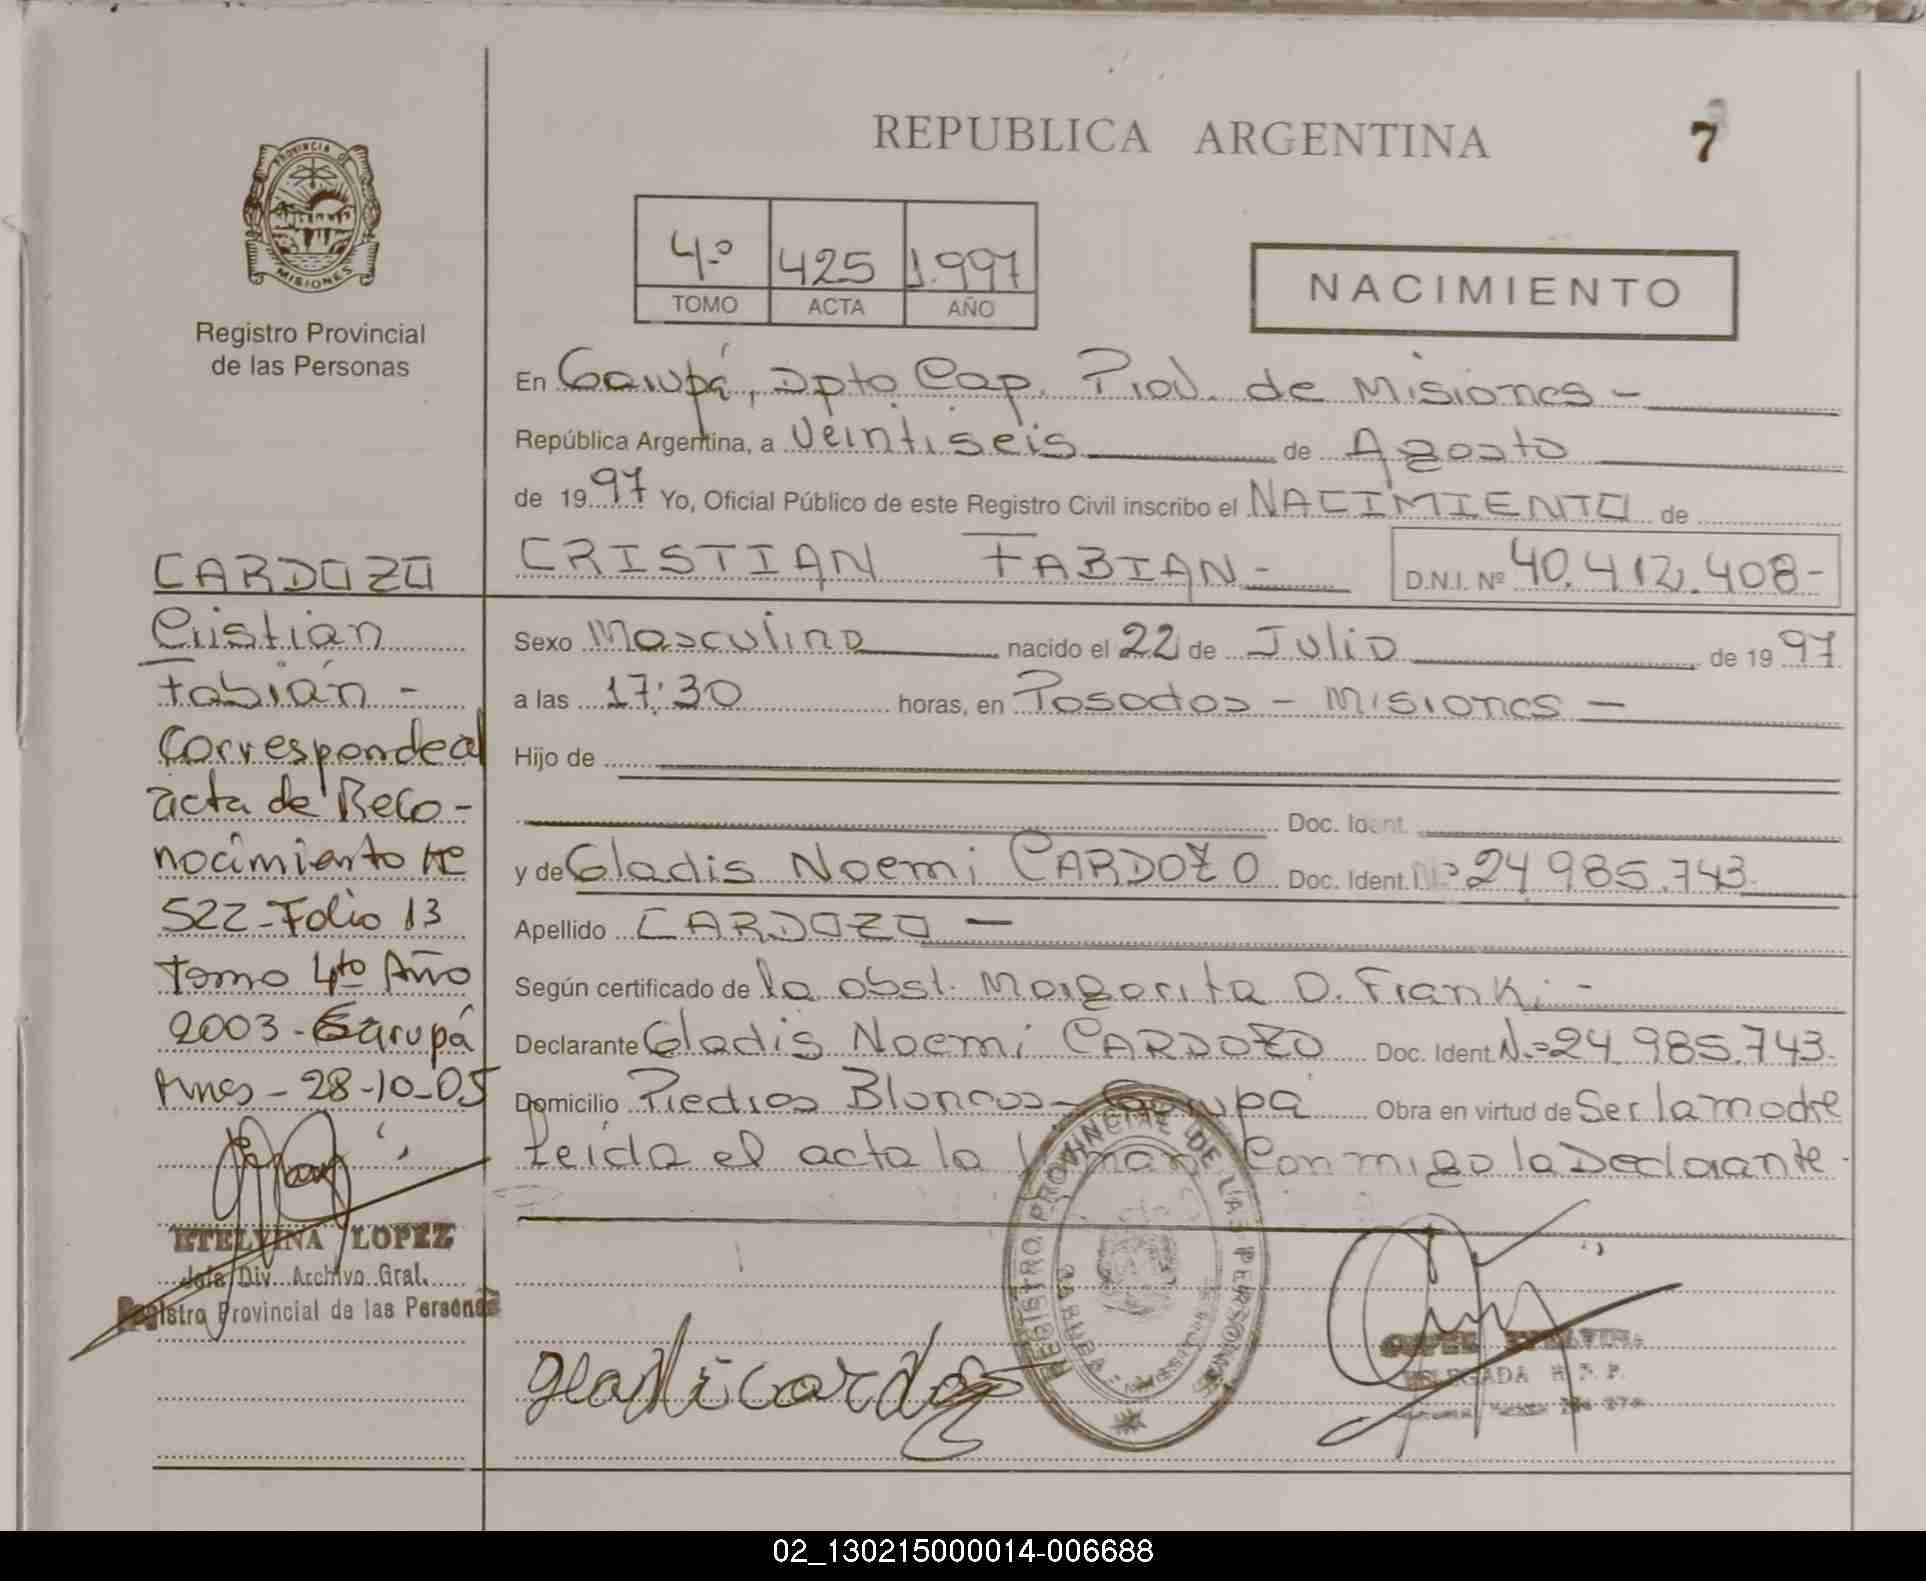 REPUBLICA ARGENTINA
7
PROVINCIA DE
MISIONES
Registro Provincial
de las Personas
4º 425 1.997
TOMO ACTA AÑO
NACIMIENTO
En Garupá, Dpto Cap. Prov. de Misiones -
República Argentina, a Veintiseis de Agosto
de 1997 Yo, Oficial Público de este Registro Civil inscribo el NACIMIENTO de
CRISTIAN FABIAN - D.N.I. Nº 40.412.408-
Sexo Masculino nacido el 22 de Julio de 1997
a las 17:30 horas, en Posadas - Misiones -
Hijo de
Doc. Ident.
y de Gladis Noemi CARDOZO Doc. Ident. Nº 24.985.743
Apellido CARDOZO -
Según certificado de la obst. Margarita D. Franki -
Declarante Gladis Noemi CARDOZO Doc. Ident. Nº 24.985.743.
Domicilio Piedras Blancas - Garupá Obra en virtud de Ser la madre
Leida el acta la firman Conmigo la Declarante -
CARDOZO
Cristian
Fabián -
Corresponde al
acta de Reco-
nocimiento Nº
522 - Folio 13
Tomo 4to Año
2003 - Garupá
Mnes - 28-10-05
ETELVINA LOPEZ
Jefa Div. Archivo Gral.
Registro Provincial de las Personas
REGISTRO PROVINCIAL DE LAS PERSONAS
gladi cardozo
DELEGADA R. P. P.
02_130215000014-006688